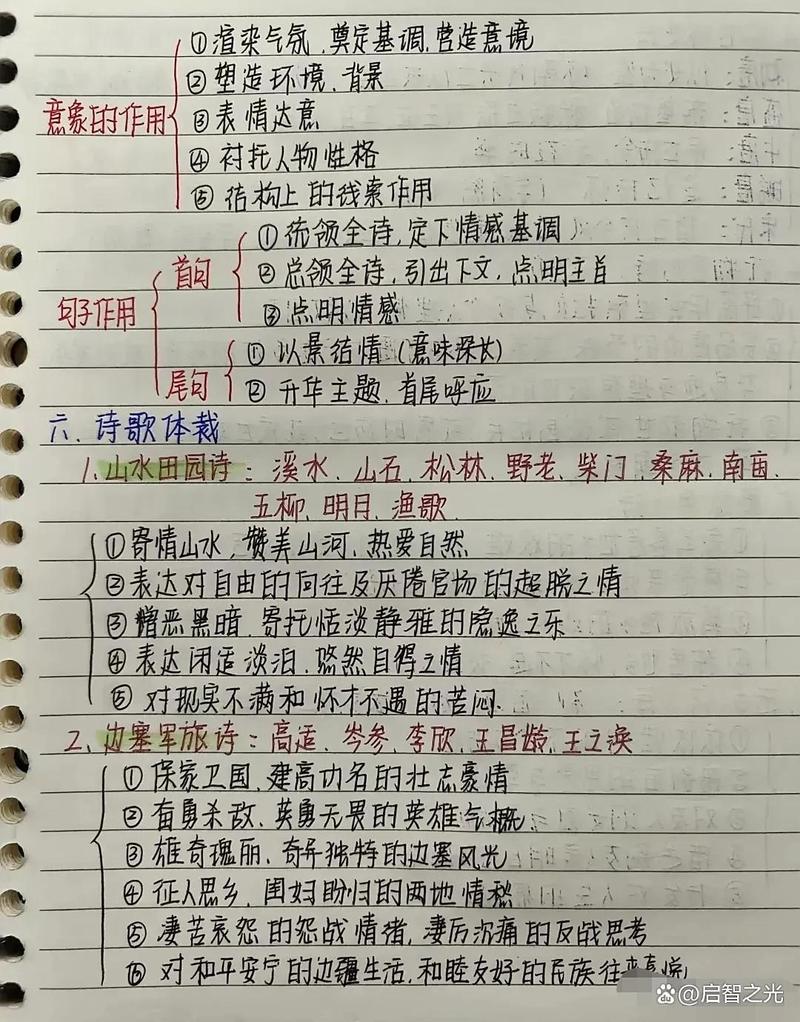 ① 渲染气氛、奠定基调、营造意境
② 塑造环境、背景
意象的作用 ③ 表情达意
④ 衬托人物性格
⑤ 结构上的线索作用
① 统领全诗,定下情感基调
首句 ② 总领全诗,引出下文,点明主旨
句子作用 ③ 点明情感
① 以景结情(意味深长)
尾句 ② 升华主题、首尾呼应
六、诗歌体裁
1.山水田园诗:溪水、山石、松林、野老、柴门、桑麻、南亩、
五柳、明月、渔歌
① 寄情山水,赞美山河、热爱自然
② 表达对自由的向往及厌倦官场的超脱之情
③ 憎恶黑暗、寄托恬淡静雅的隐逸之乐
④ 表达闲适淡泊、悠然自得之情
⑤ 对现实不满和怀才不遇的苦闷
2、边塞军旅诗:高适、岑参、李欣、王昌龄、王之涣
① 保家卫国、建高功名的壮志豪情
② 奋勇杀敌、英勇无畏的英雄气概
③ 雄奇瑰丽、奇异独特的边塞风光
④ 征人思乡、闺妇盼归的两地情愁
⑤ 凄苦哀怨的怨战情绪,凄厉沉痛的反战思考
⑥ 对和平安宁的边疆生活,和睦友好的民族往来喜悦
Bai度 @启智之光